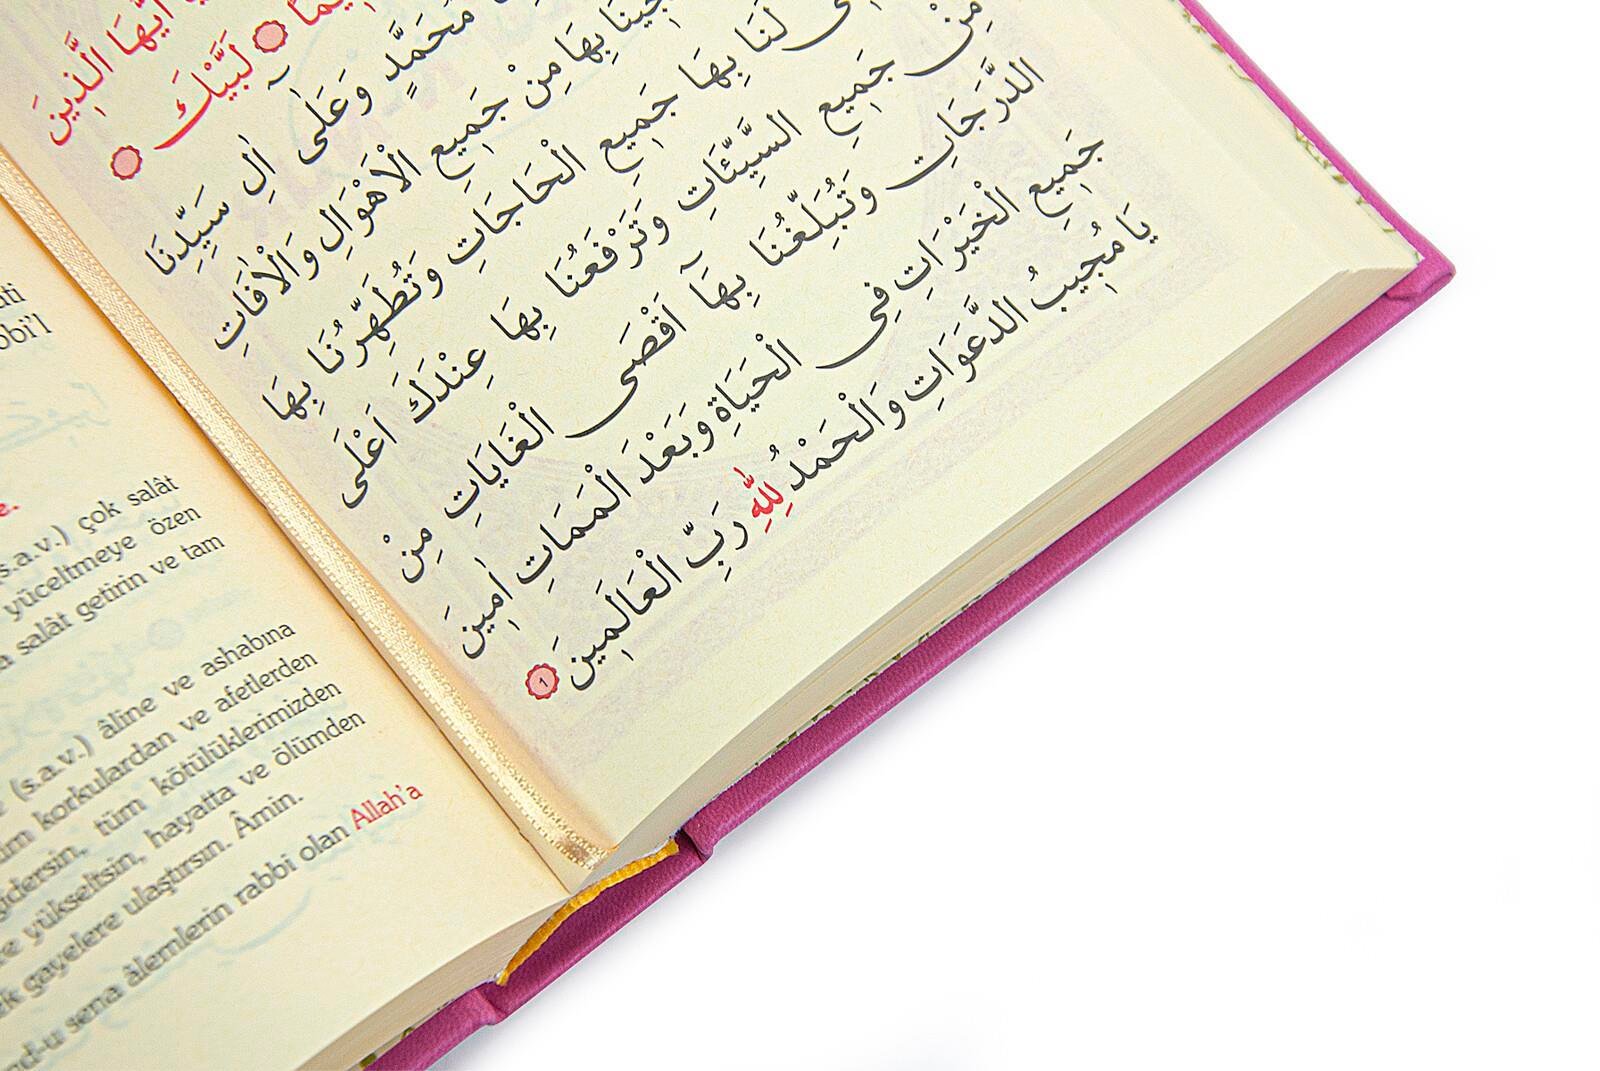 اَيُّهَا الَّذِينَ
لَبَّيْكَ
مُحَمَّدٍ وَعَلٰٓى اٰلِ سَيِّدِنَا
بِهَا مِنْ جَمِيعِ الْاَهْوَالِ وَالْاٰفَاتِ
لَنَا بِهَا جَمِيعَ الْحَاجَاتِ وَتُطَهِّرُنَا بِهَا
مِنْ جَمِيعِ السَّيِّئَاتِ وَتَرْفَعُنَا بِهَا عِنْدَكَ اَعْلَى
الدَّرَجَاتِ وَتُبَلِّغُنَا بِهَٓا اَقْصَى الْغَايَاتِ مِنْ
جَمِيعِ الْخَيْرَاتِ فِى الْحَيَاةِ وَبَعْدَ الْمَمَاتِ اٰمِينَ
يَا مُجِيبُ الدَّعَوَاتِ وَالْحَمْدُ لِلّٰهِ رَبِّ الْعَالَمِينَ ١
(s.a.v.) çok salât
yüceltmeye özen
salât getirin ve tam
(s.a.v.) âline ve ashabına
korkulardan ve afetlerden
gidersin, tüm kötülüklerimizden
yükseltsin, hayatta ve ölümden
gayelere ulaştırsın. Âmin.
sena âlemlerin rabbi olan Allah'a